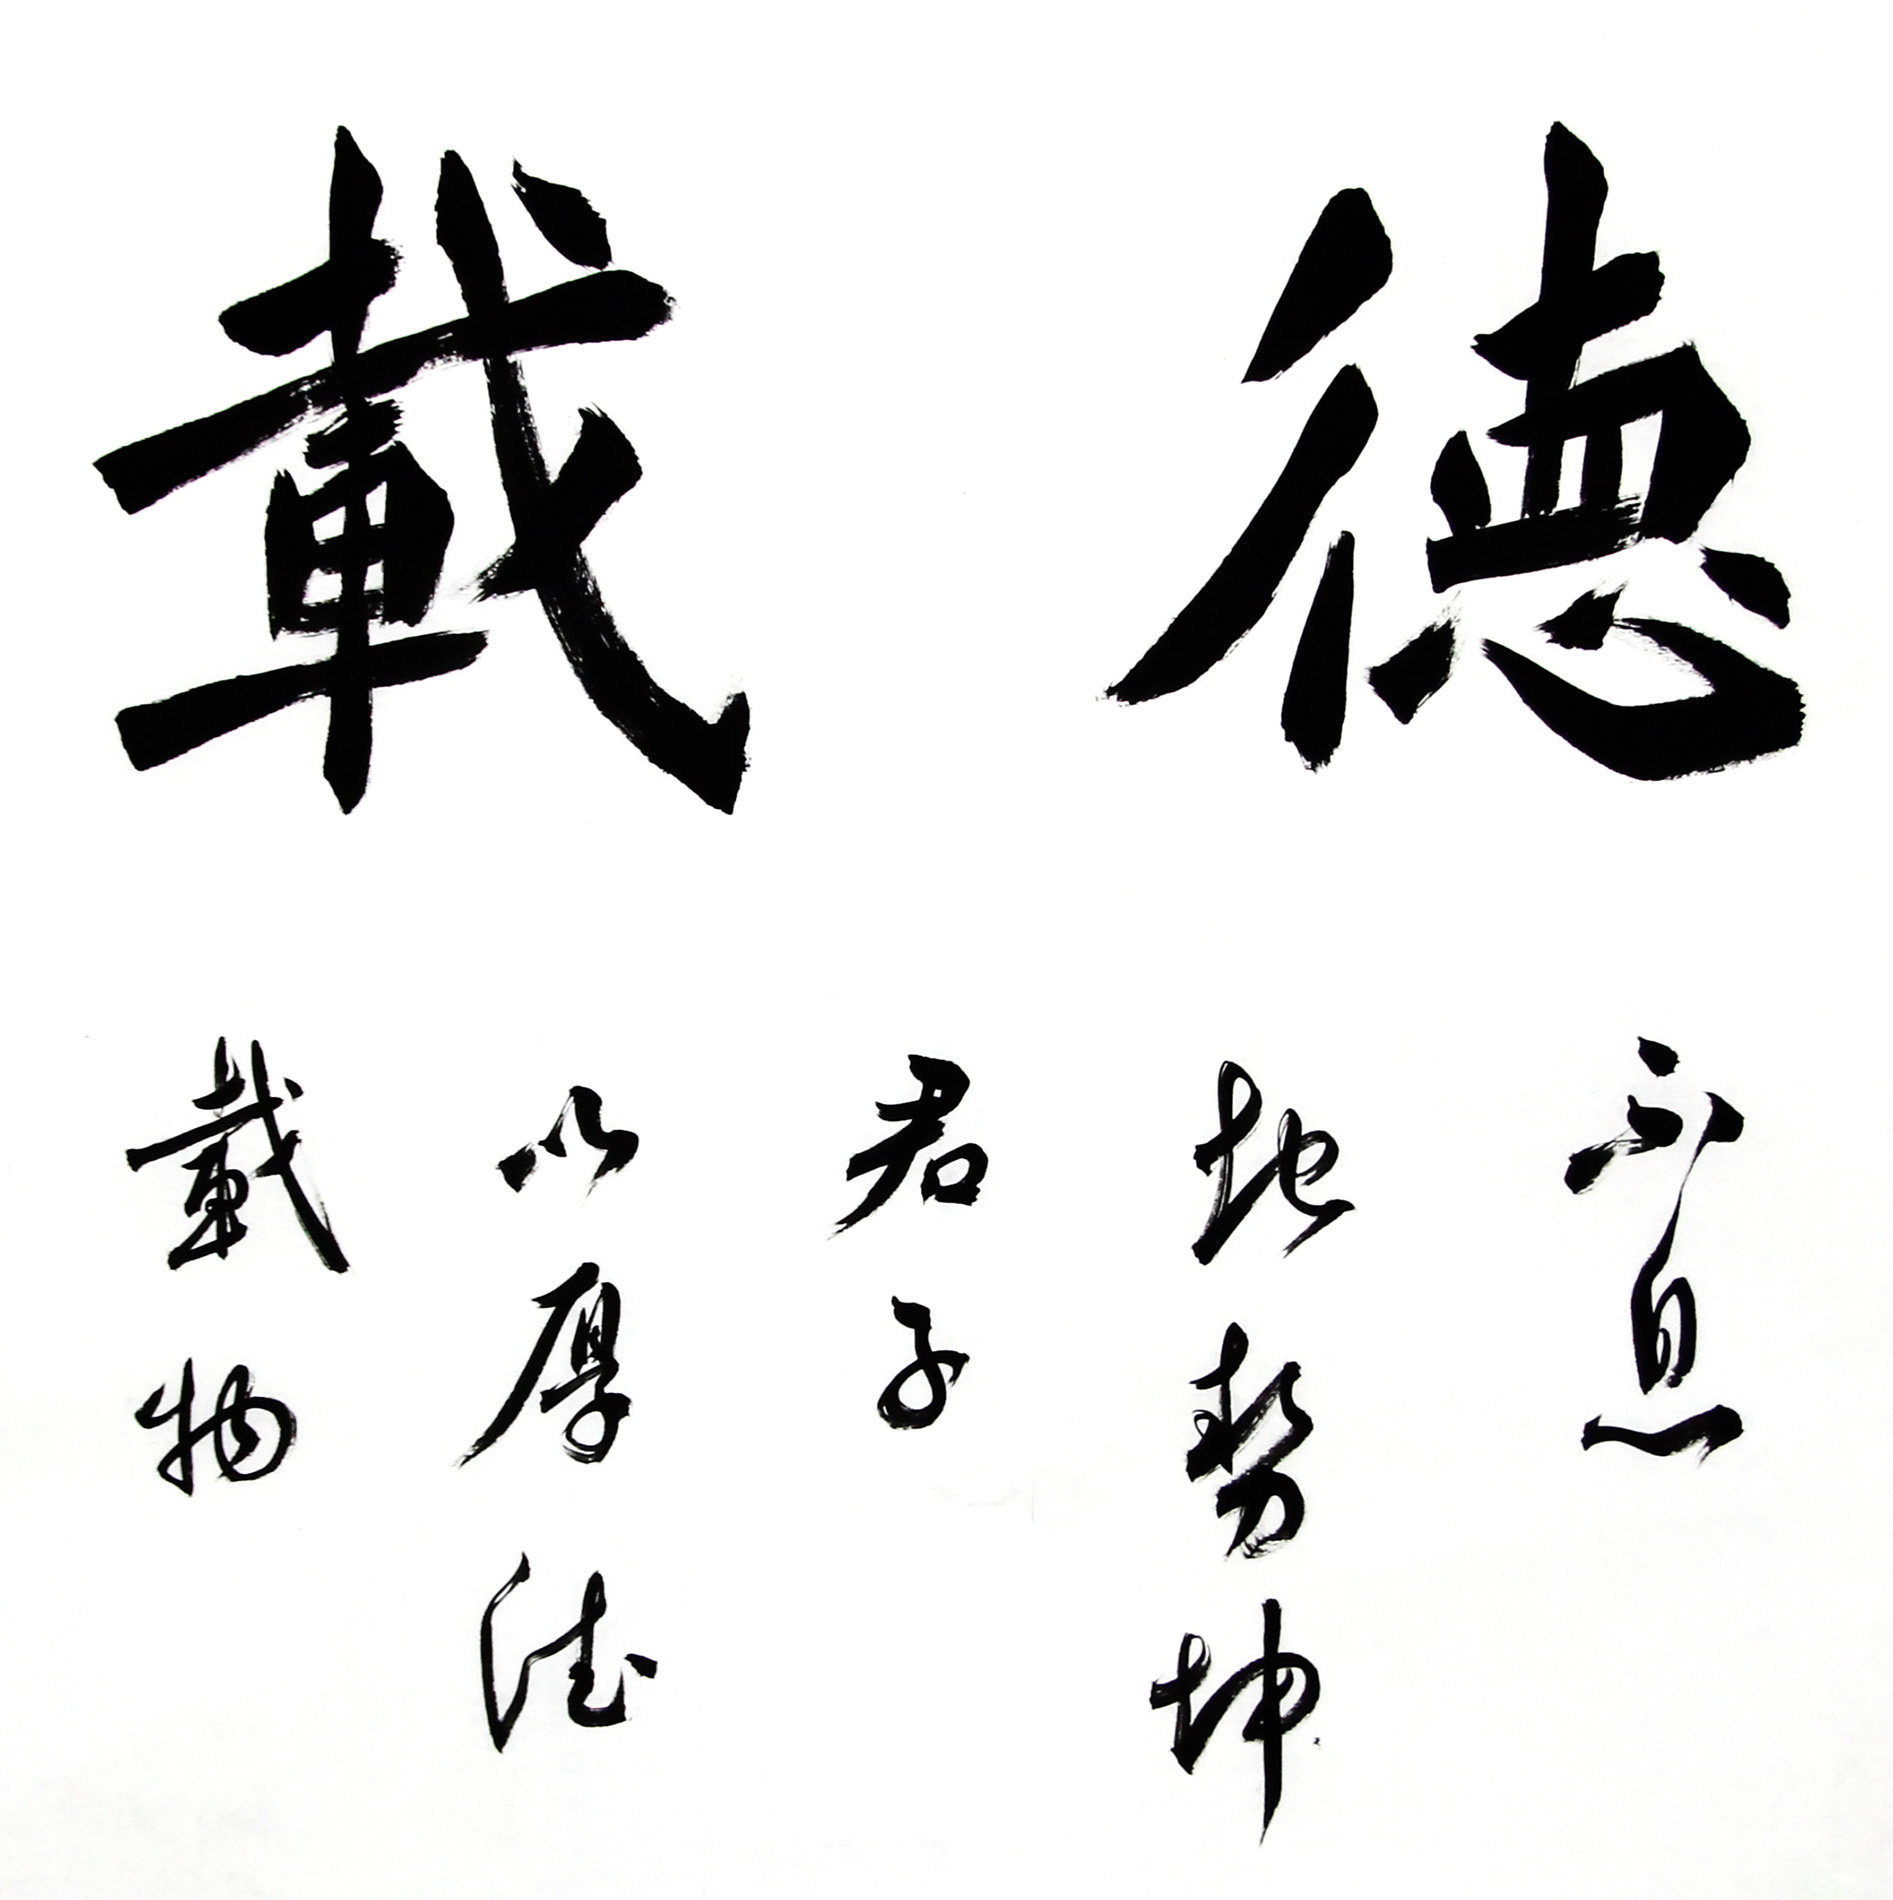 德載
不息
地勢坤
君子
以厚德
載物